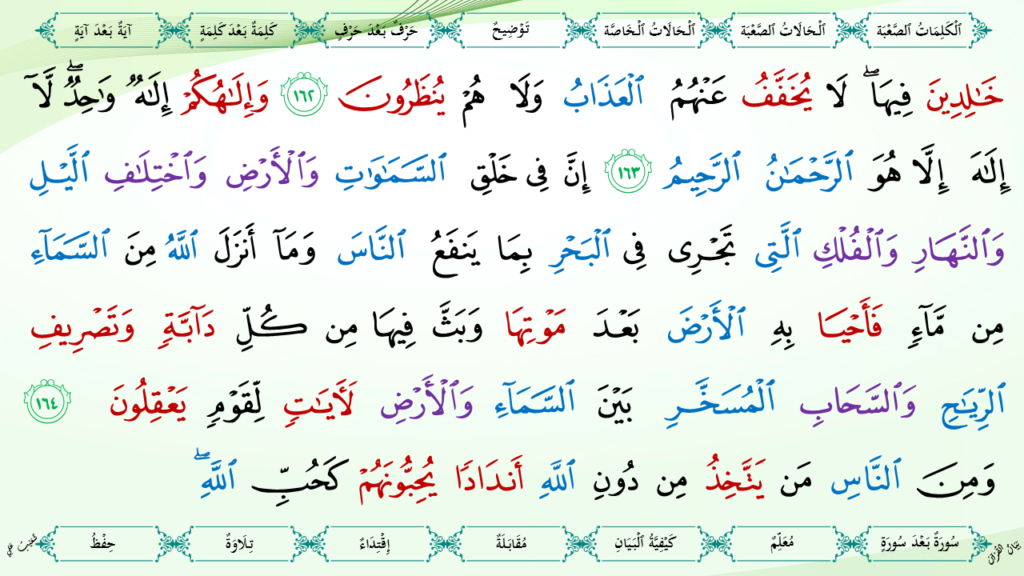 ٱلْكَلِمَاتُ ٱلصَّعْبَة ٱلْحَالَاتُ ٱلصَّعْبَة ٱلْحَالَاتُ ٱلْخَاصَّة تَوْضِيحٌ حَرْفٌ بَعْدَ حَرْفٍ كَلِمَةٌ بَعْدَ كَلِمَةٍ آيَةٌ بَعْدَ آيَةٍ
خَـٰلِدِينَ فِيهَاۖ لَا يُخَفَّفُ عَنْهُمُ ٱلْعَذَابُ وَلَا هُمْ يُنظَرُونَ ١٦٢ وَإِلَـٰهُكُمْ إِلَـٰهٌ وَٰحِدٌۖ لَّآ
إِلَـٰهَ إِلَّا هُوَ ٱلرَّحْمَـٰنُ ٱلرَّحِيمُ ١٦٣ إِنَّ فِى خَلْقِ ٱلسَّمَـٰوَٰتِ وَٱلْأَرْضِ وَٱخْتِلَـٰفِ ٱلَّيْلِ
وَٱلنَّهَارِ وَٱلْفُلْكِ ٱلَّتِى تَجْرِى فِى ٱلْبَحْرِ بِمَا يَنفَعُ ٱلنَّاسَ وَمَآ أَنزَلَ ٱللَّهُ مِنَ ٱلسَّمَآءِ
مِن مَّآءٍ فَأَحْيَا بِهِ ٱلْأَرْضَ بَعْدَ مَوْتِهَا وَبَثَّ فِيهَا مِن كُلِّ دَآبَّةٍ وَتَصْرِيفِ
ٱلرِّيَـٰحِ وَٱلسَّحَابِ ٱلْمُسَخَّرِ بَيْنَ ٱلسَّمَآءِ وَٱلْأَرْضِ لَـَٔايَـٰتٍ لِّقَوْمٍ يَعْقِلُونَ ١٦٤
وَمِنَ ٱلنَّاسِ مَن يَتَّخِذُ مِن دُونِ ٱللَّهِ أَندَادًا يُحِبُّونَهُمْ كَحُبِّ ٱللَّهِۖ
سُورَةٌ بَعْدَ سُورَةٍ مُعَلِّمٌ كَيْفِيَّةُ ٱلْبَيَانِ مُقَابَلَةٌ إِقْتِدَاءٌ تِلَاوَةٌ حِفْظٌ